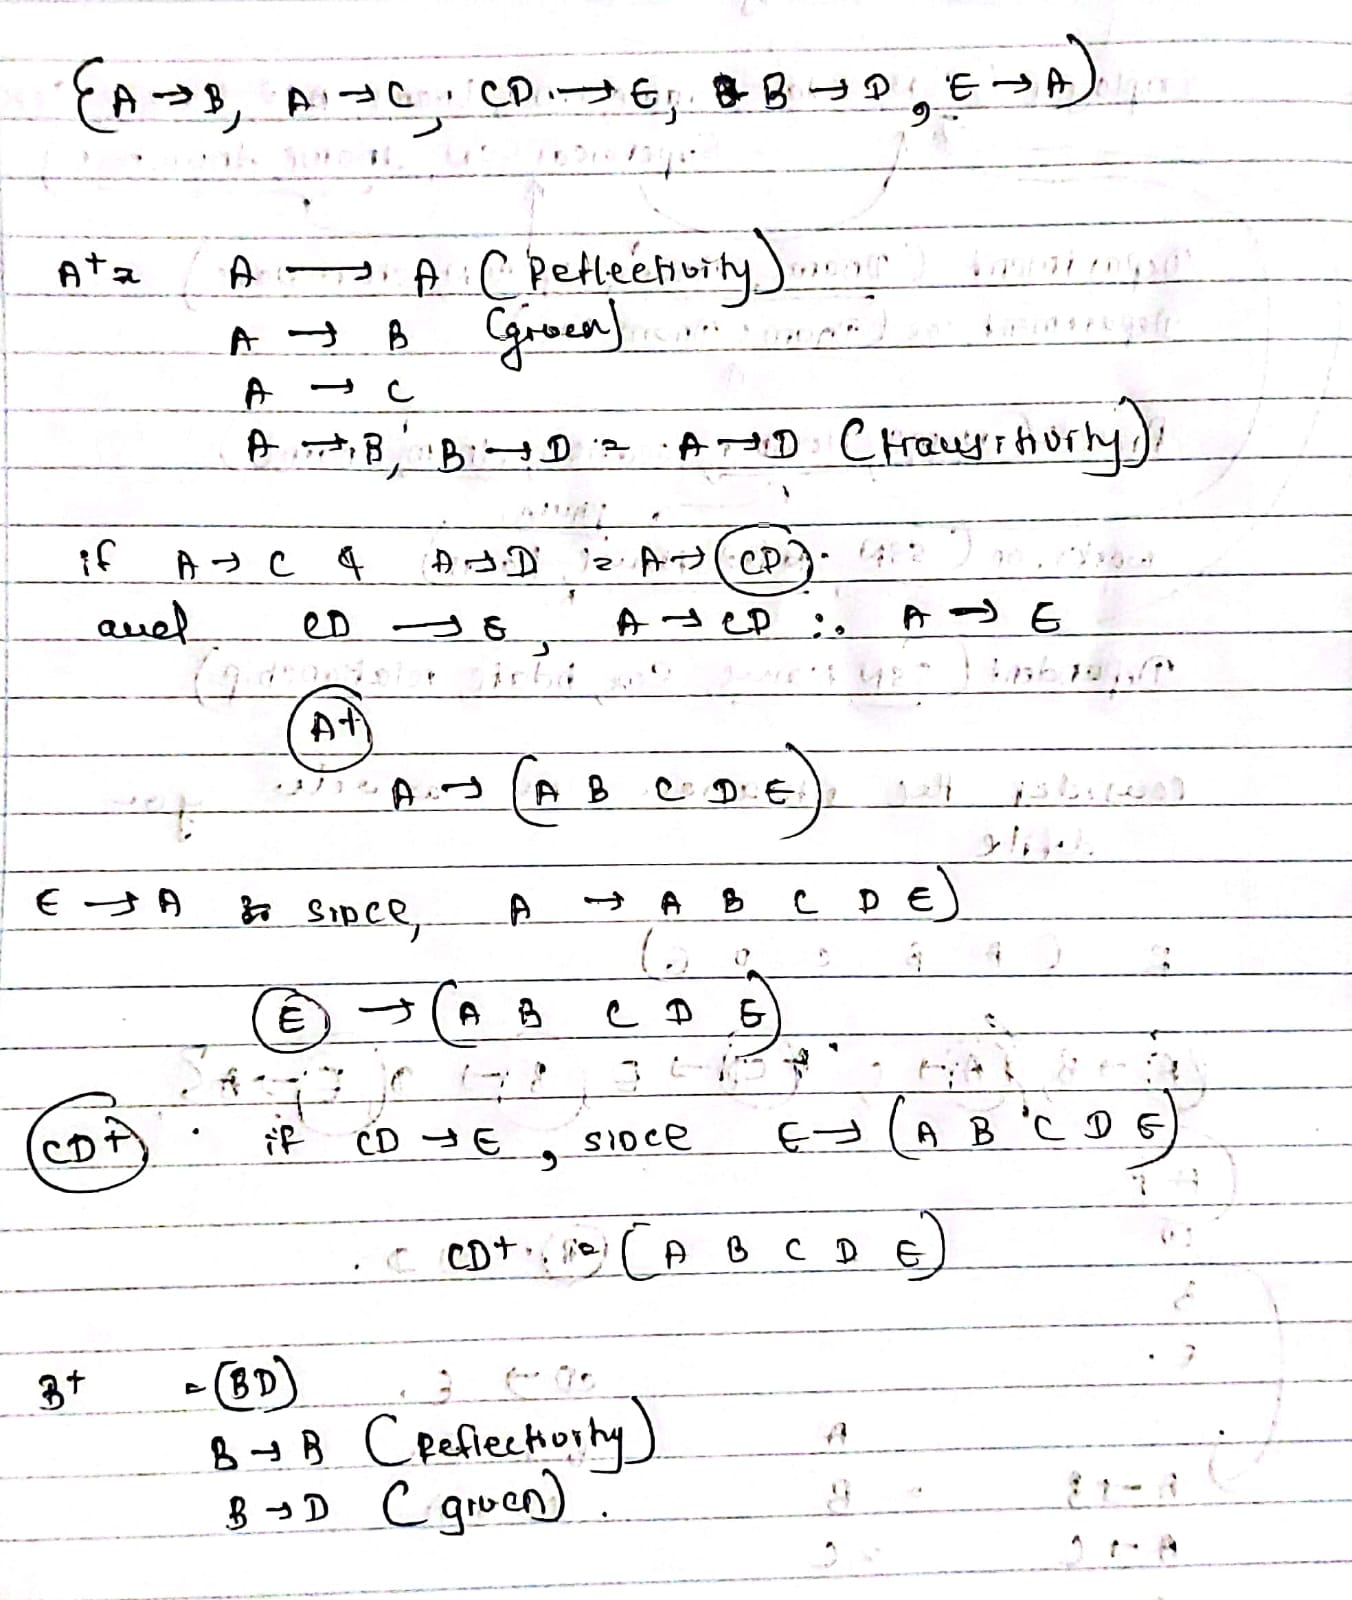 {A → B, A → C, CD → E, B → D, E → A}
A+ = A → A (Reflectivity)
A → B (given)
A → C
A → B, B → D = A → D (transitivity)
if A → C & A → D = A → CD.
and CD → E, A → CD ∴ A → E
A+
A → (A B C D E)
E → A since, A → A B C D E)
E → (A B C D E)
CD+ . if CD → E, since E → (A B C D E)
CD+ = (A B C D E)
B+ = (BD)
B → B (Reflectivity)
B → D (given).